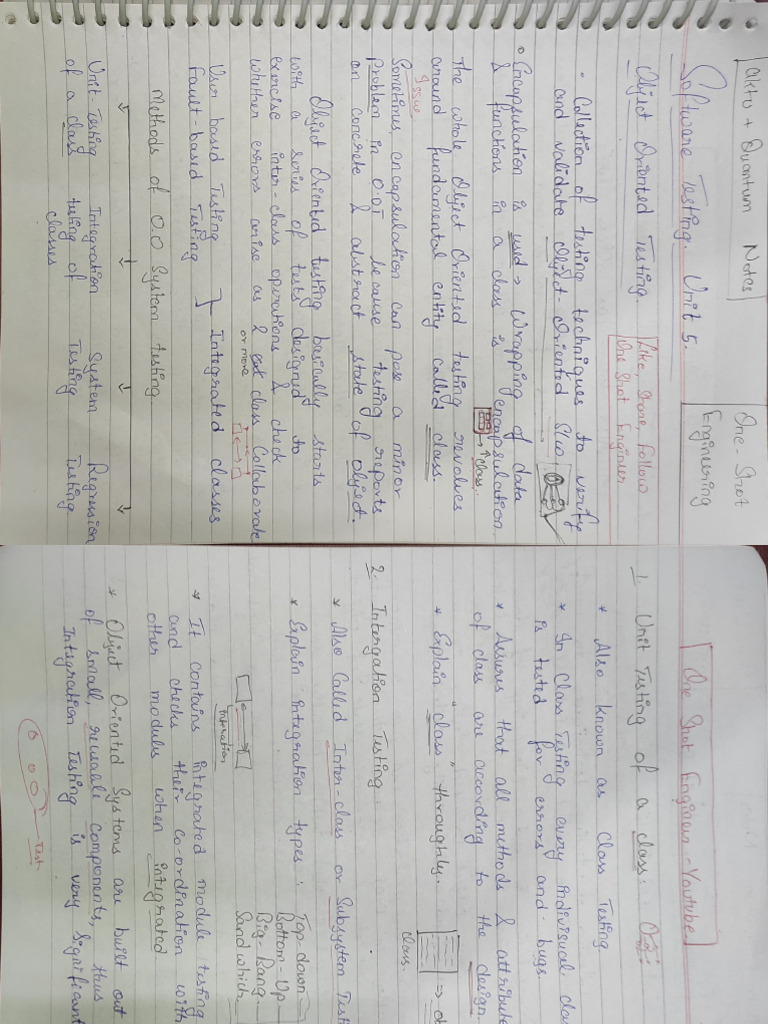 aktu + Quantum Notes
One-Shot Engineering
Software Testing. Unit 5.
Like, Share, Follow
One Shot Engineer
Object Oriented Testing.
• Collection of testing techniques to verify
and validate object-oriented S/w
• Encapsulation is used → Wrapping of data
& functions in a class is encapsulation.
→ class.
The whole Object Oriented testing revolves
around fundamental entity called class.
Issue
Sometimes, encapsulation can pose a minor
problem in O.OT because testing reports
on concrete & abstract state of object.
Object Oriented testing basically starts
with a series of tests designed to
exercise inter-class operations & check
whether errors arise as 2 class collaborate
or more
User based Testing
Fault-based Testing } Integrated classes
Methods of O.O System testing
Unit Testing of a class
Integration testing of classes
System Testing
Regression Testing
One Shot Engineer - Youtube
1. Unit Testing of a class:
* Also known as Class Testing
* In Class Testing every indivisual cla
is tested for errors and bugs.
* Assures that all methods & attribute
of class are according to the design.
* Explain "class" throughly.
class.
2. Intergation Testing
* Also Called Inter-class or Subsystem Test
* Explain integration types: Top-down
Bottom-Up
Big-Bang
Sandwhich
* It contains integrated module testing
and checks their co-ordination with
other modules when integrated
* Object Oriented Systems are built out
of small, reusable components, thus
Integration Testing is very significant
Test